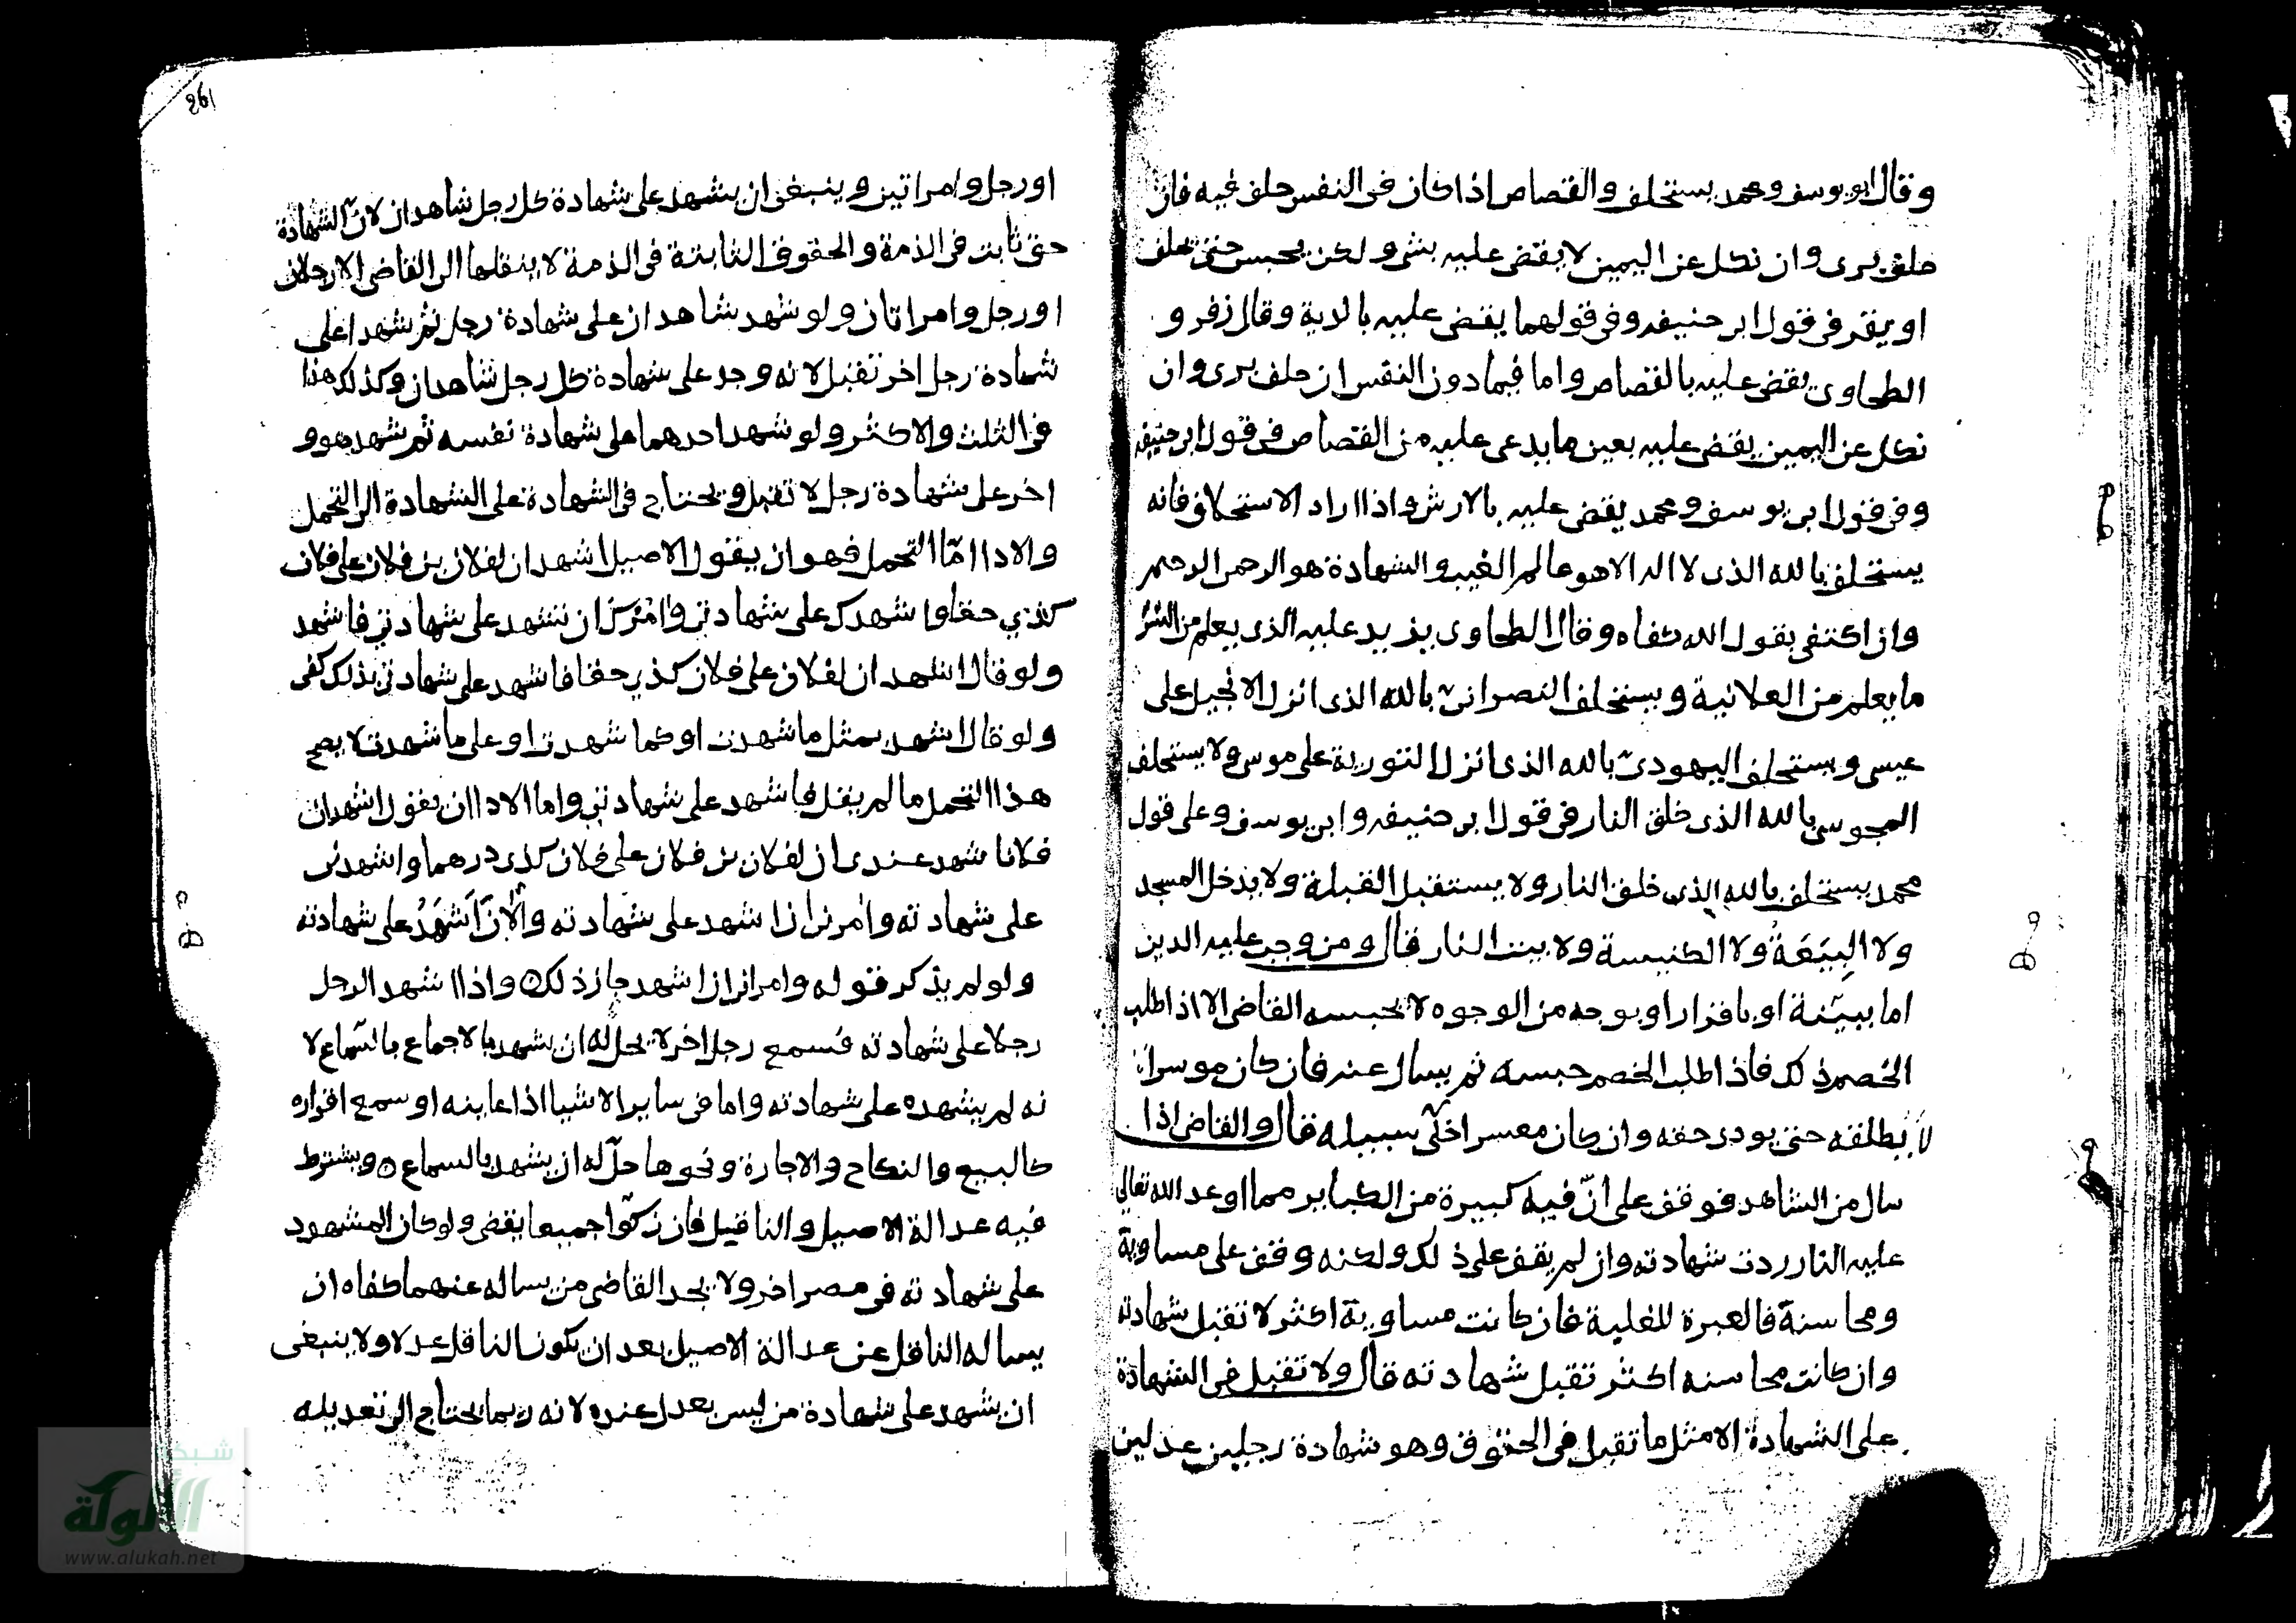 وقال ابو يوسف ومحمد يستحلف والقصاص اذا كان فى النفس حلف فيه فان
حلف برى وان نكل عن اليمين لا يقضى عليه بشى ولكن يحبس حتى يحلف
او يقر فى قول ابى حنيفه وفى قولهما يقضى عليه بالدية وقال زفر و
الطحاوى يقضى عليه بالقصاص واما فيما دون النفس ان حلف برى وان
نكل عن اليمين يقضى عليه بعين ما يدعى عليه من القصاص فى قول ابى حنيفه
وفى قول ابى يوسف ومحمد يقضى عليه بالارش واذا اراد الاستحلاف فانه
يستحلف بالله الذى لا اله الا هو عالم الغيب والشهادة هو الرحمن الرحيم
وان اكتفى بقول الله كفاه وقال الطحاوى يزيد عليه الذى يعلم من السر
ما يعلم من العلانية ويستحلف النصرانى بالله الذى انزل الانجيل على
عيسى ويستحلف اليهودى بالله الذى انزل التورية على موسى ولا يستحلف
المجوسى بالله الذى خلق النار فى قول ابى حنيفه وابى يوسف وعلى قول
محمد يستحلف بالله الذى خلق النار ولا يستقبل القبلة ولا يدخل المسجد
ولا البِيَعَةُ ولا الكنيسة ولا بيت النار قال ومن وجب عليه الدين
اما ببيّنة او باقرار او بوجه من الوجوه لا يحبسه القاضى الا اذا طلب
الخصم ذلك فاذا طلب الخصم حبسه ثم يسال عنه فان كان موسرا
لا يطلقه حتى يودى حقه وان كان معسرا خلّى سبيله قال والقاضى اذا
سال من الشاهد فوقف على انّ فيه كبيرة من الكباير مما اوعد الله تعالى
عليه النار ردت شهادته وان لم يقف على ذلك ولكنه وقف على مساوية
ومحاسنة فالعبرة للغلبة فان كانت مساوية اكثر لا تقبل شهادته
وان كانت محاسنه اكثر تقبل شهادته قال ولا تقبل فى الشهادة
على الشهادة الا مثل ما تقبل فى الحقوق وهو شهادة رجلين عدلين
261
او رجل وامراتين وينبغى ان يشهد على شهادة كل رجل شاهدان لانّ الشهادة
حق ثابت فى الذمة والحقوق الثابتة فى الذمة لا ينقلها الى القاضى الا رجلان
او رجل وامراتان ولو شهد شاهدان على شهادة رجل ثم شهدا على
شهادة رجل اخر تقبل لانه وجد على شهادة كل رجل شاهدان وكذلك هذا
فى الثلث والاكثر ولو شهد احدهما على شهادة نفسه ثم شهد هو و
اخر على شهادة رجل لا تقبل ويحتاج فى الشهادة على الشهادة الى التحمل
والادا امّا التحمل فهو ان يقول الاصيل اشهد ان لفلان بن فلان على فلان
كذي حقا وا شهدك على شهادتى وامرك ان تشهد على شهادتى فاشهد
ولو قال اشهد ان لفلان على فلان كذي حقا فاشهد على شهادتى بذلك كفى
ولو قال اشهد بمثل ما شهدت او كما شهدت او على ما شهدت لا يصح
هذا التحمل ما لم يقل فاشهد على شهادتى واما الادا ان يقول اشهد ان
فلانا شهد عندى ان لفلان بن فلان على فلان كذى درهما واشهدنى
على شهادته وامرنى ان اشهد على شهادته والآن اَشهَدُ على شهادته
ولو لم يذكر قوله وامرنى ان اشهد جاز ذلك واذا اشهد الرجل
رجلا على شهادته فسمع رجل اخر لا يحل له ان يشهد بالاجماع بالسّماع لا
نه لم يشهده على شهادته واما فى ساير الاشيا اذا عاينه او سمع اقراره
كالبيع والنكاح والاجارة ونحوها حلّ له ان يشهد بالسماع ه ويشترط
فيه عدالة الاصيل والناقيل فان زكّوا جميعا يقضى ولو كان المشهود
على شهادته فى مصر اخر ولا يجد القاضى من يساله عنهما كفاه ان
يساله الناقل عن عدالة الاصيل بعد ان يكون الناقل عدلا ولا ينبغى
ان يشهد على شهادة من ليس بعدل عنده لانه ربما يحتاج الى تعديله
شبكة
الألوكة
www.alukah.net